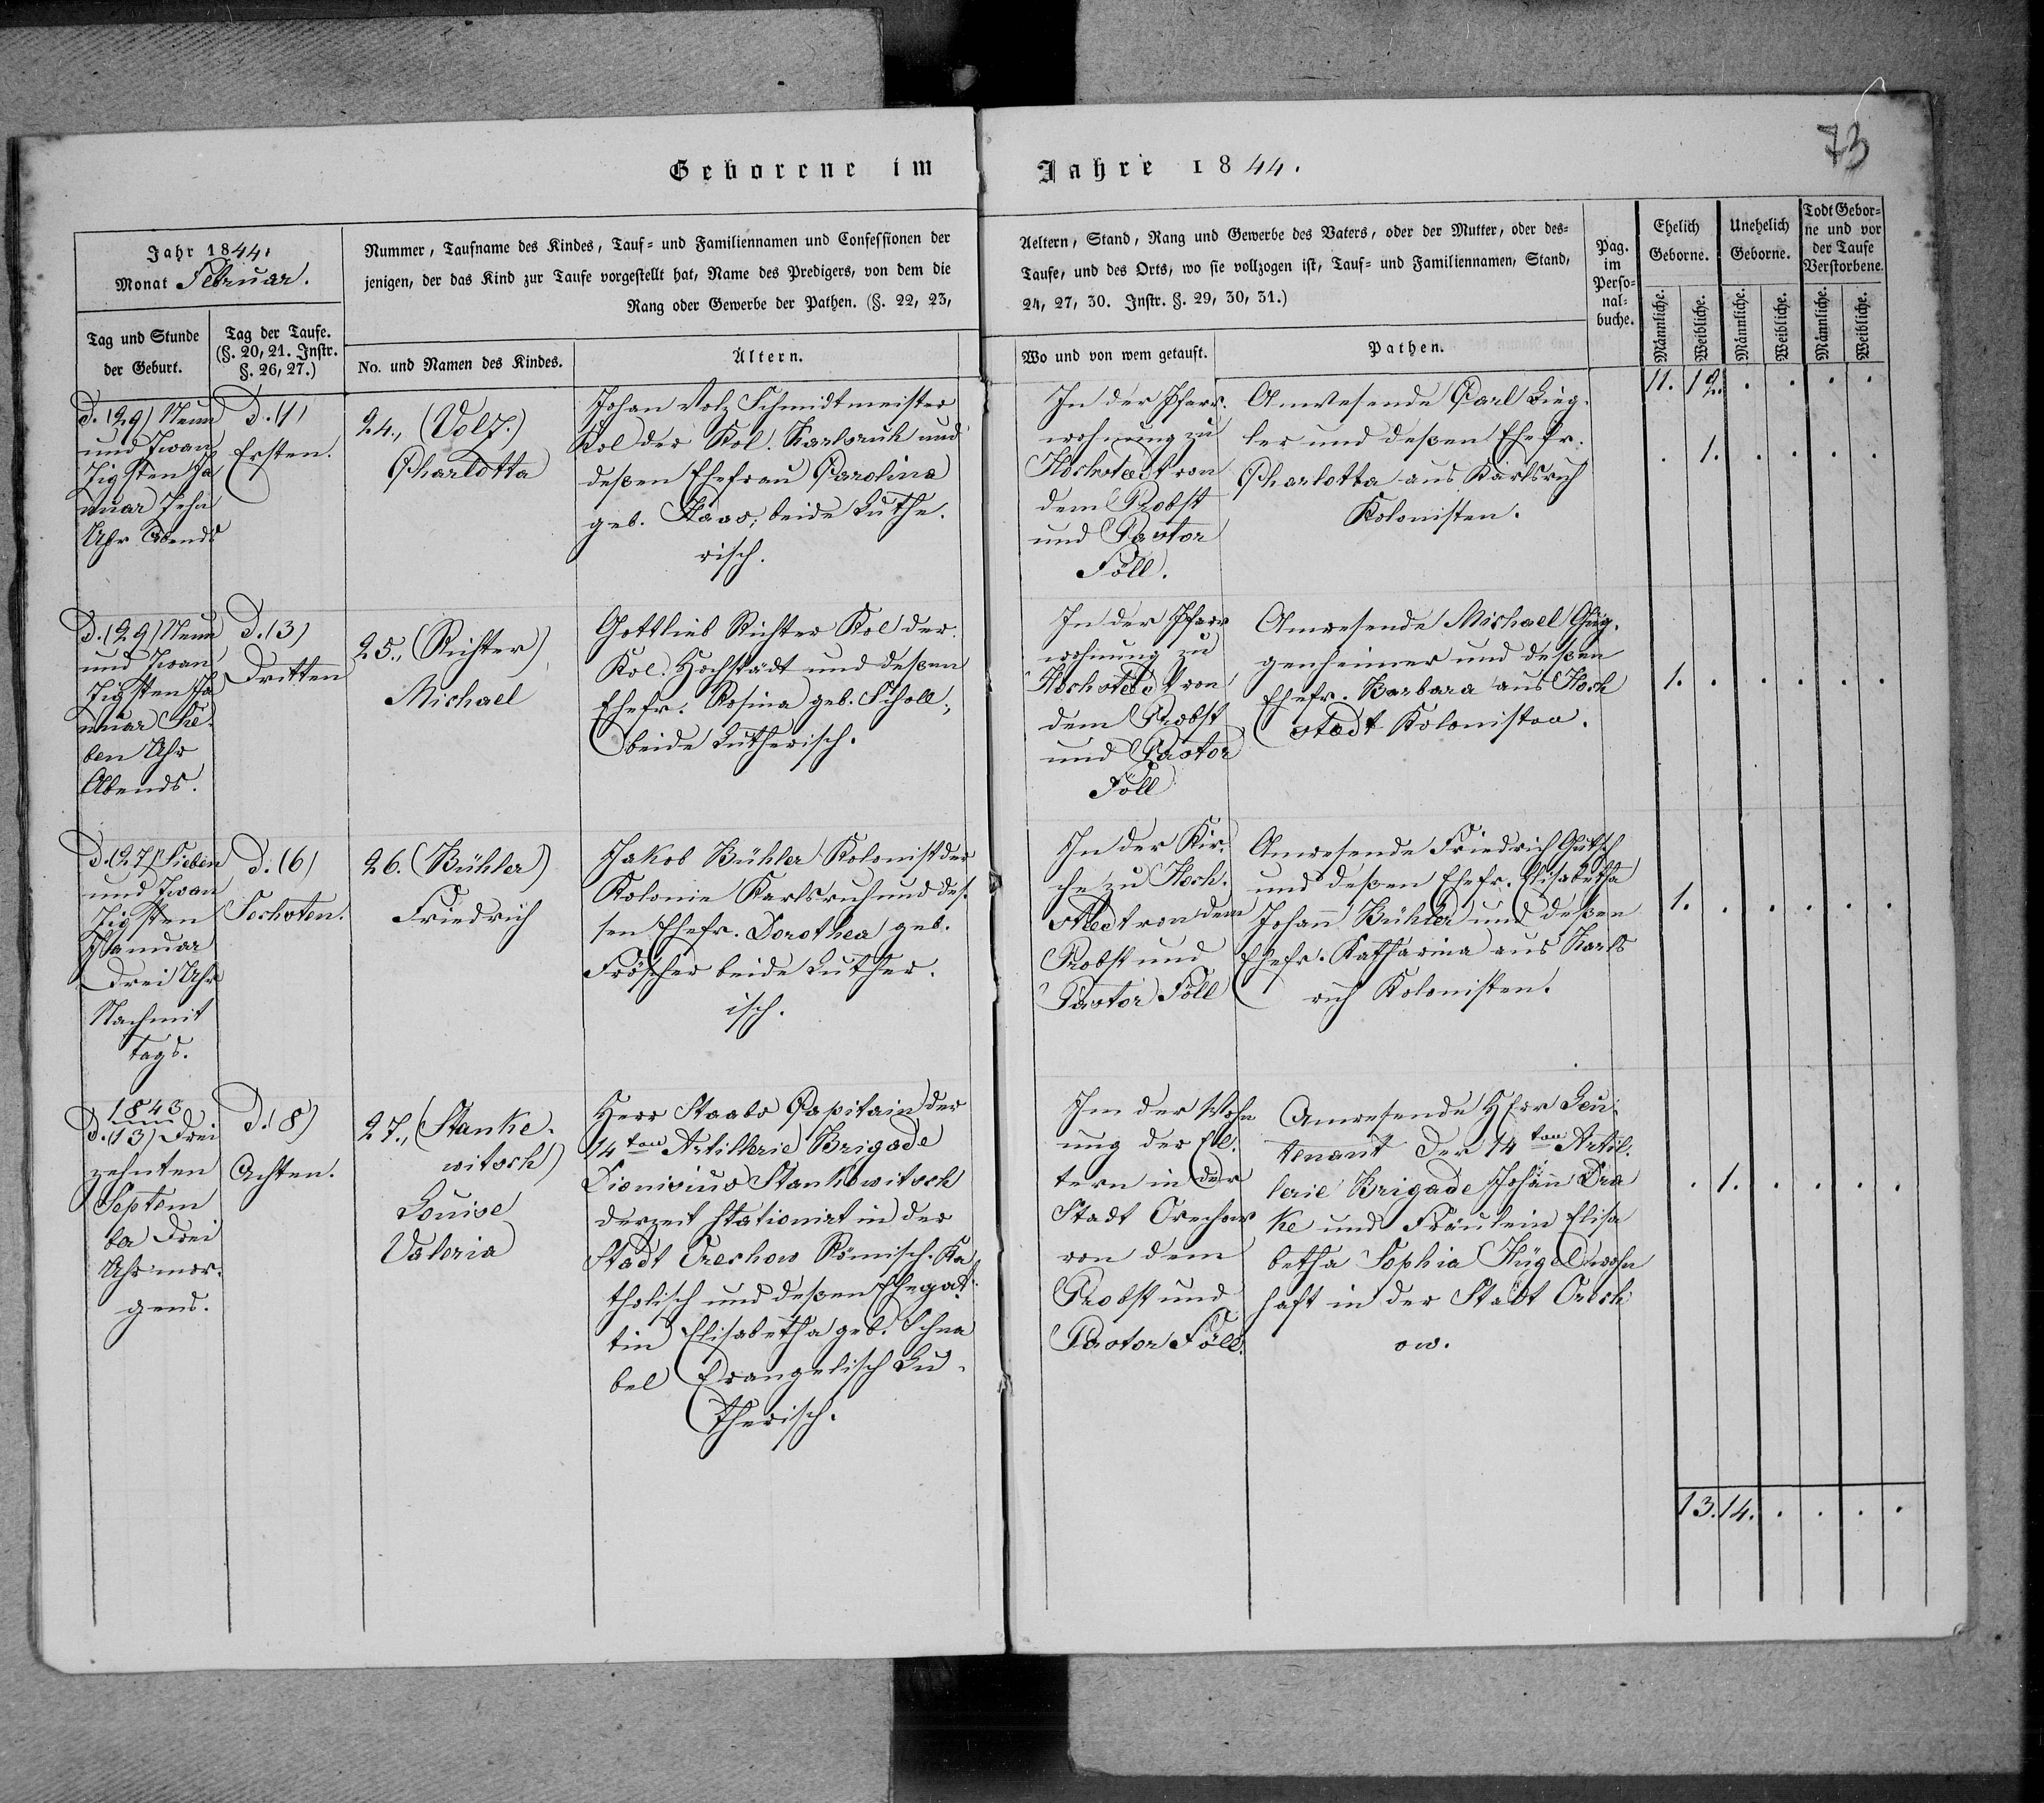 73
Geborene im Jahre 1844.
Jahr 1844.
Monat Februar.
Tag und Stunde
der Geburt.
Tag der Taufe.
(§. 20, 21. Instr.
§. 26, 27.)
Nummer, Taufname des Kindes, Tauf- und Familiennamen und Confessionen der
jenigen, der das Kind zur Taufe vorgestellt hat, Name des Predigers, von dem die
Rang oder Gewerbe der Pathen. (§. 22, 23,
No. und Namen des Kindes.
Ältern.
Aeltern, Stand, Rang und Gewerbe des Vaters, oder der Mutter, oder des-
Taufe, und des Orts, wo sie vollzogen ist, Tauf- und Familiennamen, Stand,
24, 27, 30. Instr. §. 29, 30, 31.)
Wo und von wem getauft.
Pathen.
Pag.
im
Perso-
nal-
buche.
Ehelich
Geborne.
Unehelich
Geborne.
Todt Gebor-
ne und vor
der Taufe
Verstorbene.
Männliche.
Weibliche.
Männliche.
Weibliche.
Männliche.
Weibliche.
11. 12. . . . .
D. (29) Neun
und zwan
zigsten Ja
nuar Zehn
Uhr Abends
D. (1)
Ersten.
24., (Volz.)
Charlotta
Johan Volz Schmidtmeister
Kol der Kol. Karlsruh und
deßen Ehefrau Carolina
geb. Haas; beide Luthe.
risch.
In der Pfarr.
wohnung zu
Hochstedt von
dem Probst
und Pastor
Föll.
Anwesende Carl Zieg.
ler und deßen Ehefr.
Charlotta aus Karlsruh
Kolonisten.
. 1. . . . .
D. (29) Neun
und zwan
zigsten Ja
nuar Sie
ben Uhr
Abends.
D. (3)
Dritten
25., (Richter)
Michael
Gottlieb Richter Kol der
Kol. Hochstädt und deßen
Ehefr. Rosina geb. Scholl,
beide Lutherisch.
In der Pfarr
wohnung zu
Hochstedt von
dem Probst
und Pastor
Föll
Anwesende Michael
genheimer und deßen
Ehefr. Barbara aus Hoch
stedt Kolonisten.
1. . . . . .
D. (27) Sieben
und zwan
zigsten
Januar
Drei Uhr
Nachmit
tags.
D. (6)
Sechsten.
26. (Bühler)
Friedrich
Jakob Bühler Kolonist der
Kolonie Karlsruh und des.
sen Ehefr. Dorothea geb.
Fröscher beide Luther.
isch.
In der Kir.
che zu Hoch.
stedt von dem
Probst und
Pastor Föll
Anwesende Friedrich Gütsch
und deßen Ehefr. Elisabetha
Johann Bühler und deßen
Ehefr. Katharina aus Karls
ruh Kolonisten.
1. . . . . .
1843
D. (13) Drei
zehnten
Septem
ber Drei
Uhr mor.
gens.
D. (8)
Achten.
27., (Stanke.
witsch)
Louise
Valeria
Herr Staabs Capitain der
14ten Artillerie Brigade
Dionisius Stankowitsch
derzeit Stationirt in der
Stadt Orechow Römisch. Ka
tholisch und deßen Ehegat.
tin Elisabetha geb. Schna
bel Evangelisch Lu.
therisch.
In der Wohn
ung der El.
tern in der
Stadt Orechow
von dem
Probst und
Pastor Föll.
Anwesende Herr Leu.
tenant der 14ten Artil.
lerie Brigade Johann Dra
ke und Fräulein Elisa
betha Sophia Hügel wohn
haft in der Stadt Orech
ow.
. 1. . . . .
13. 14. . . . .